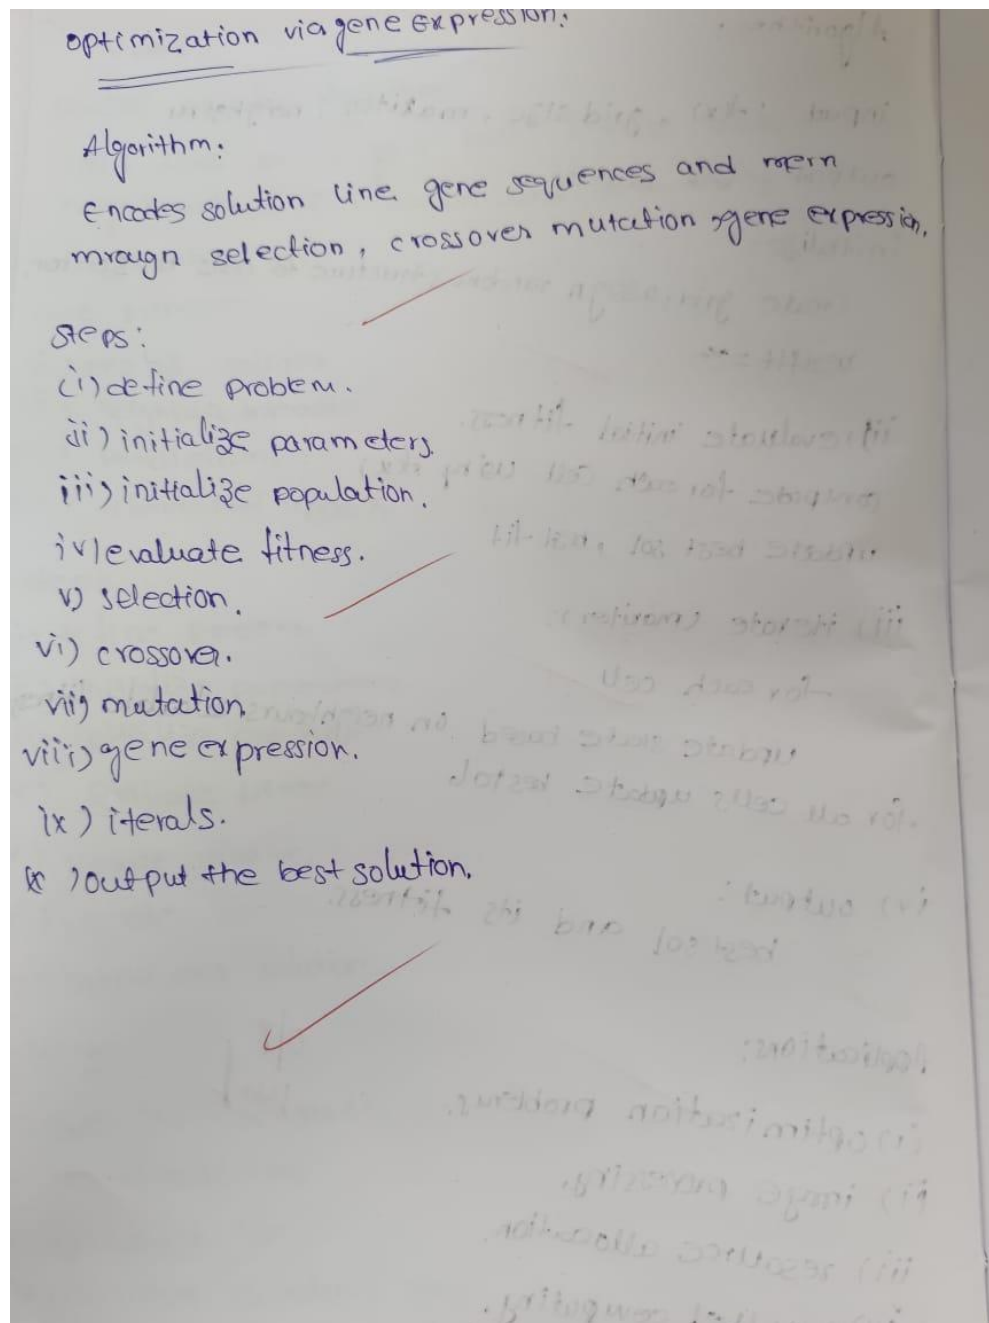 optimization via gene expression:
Algorithm:
Encodes solution line gene sequences and mern
mraugn selection, crossover mutation, gene expression.
steps:
(i) define problem.
ii) initialize parameters.
iii) initialize population.
iv) evaluate fitness.
v) selection.
vi) crossover.
vii) mutation
viii) gene expression.
ix) iterals.
x) output the best solution.